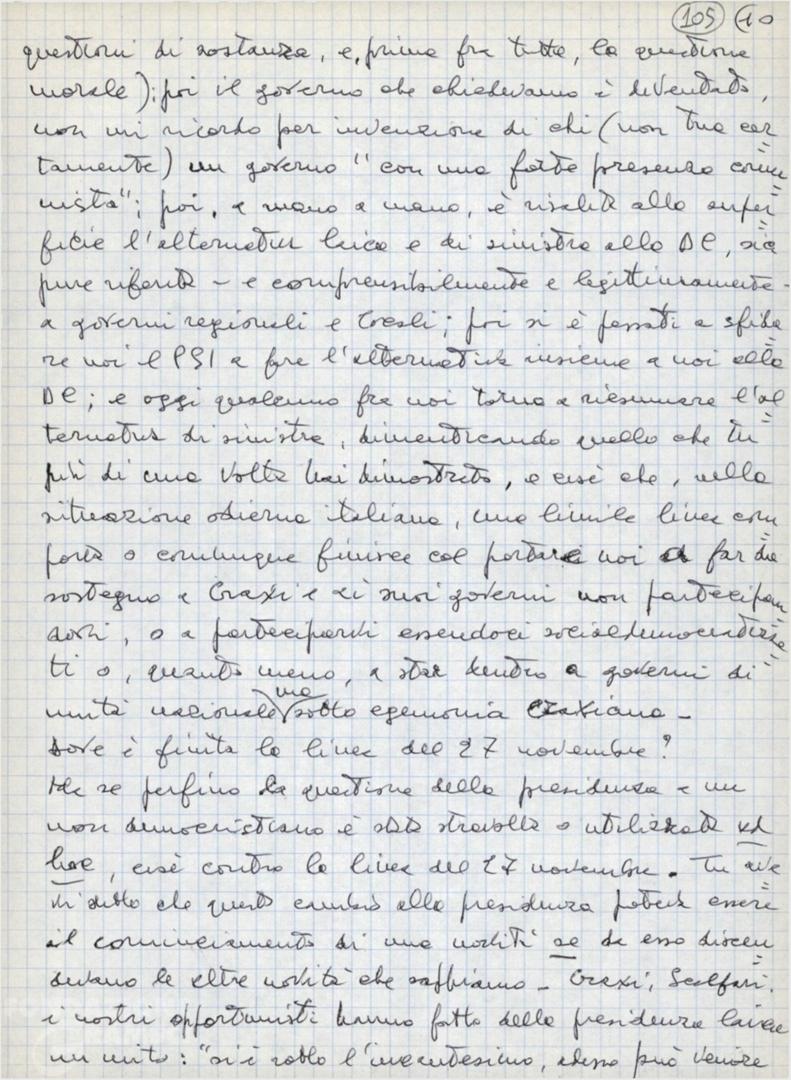 105 10
questioni di sostanza, e, prima fra tutte, la questione
morale): poi il governo che chiedevamo è diventato,
non mi ricordo per invenzione di chi (non tua cer=
tamente) un governo "con una forte presenza comu=
nista"; poi, a mano a mano, è risalita alla super=
ficie l'alternativa laica e di sinistra alla DC, sia
pure riferita - e comprensibilmente e legittimamente -
a governi regionali e locali; poi si è passati a sfida=
re noi il PSI a fare l'alternativa insieme a noi alla
DC; e oggi qualcuno fra noi torna a riesumare l'al=
ternativa di sinistra, dimenticando quello che tu
più di una volta hai dimostrato, e cioè che, nella
situazione odierna italiana, una simile linea com
porta o comunque finisce col portare noi a far da
sostegno a Craxi e ai suoi governi non partecipan=
dovi, o a parteciparvi essendoci socialdemocratizza=
ti o, quanto meno, a star dentro a governi di
unità nazionale ma sotto egemonia craxiana -
Dove è finita la linea del 27 novembre?
Ma se perfino la questione della presidenza a un
non democristiano è stata stravolta e utilizzata ad
hoc, cioè contro la linea del 27 novembre. Tu ave=
vi detto che questo cambio alla presidenza poteva essere
il cominciamento di una novità se da esso discen=
devano le altre novità che sappiamo - Craxi, Scalfari,
i nostri opportunisti hanno fatto della presidenza laica
un mito: "si è rotto l'incantesimo, adesso può venire